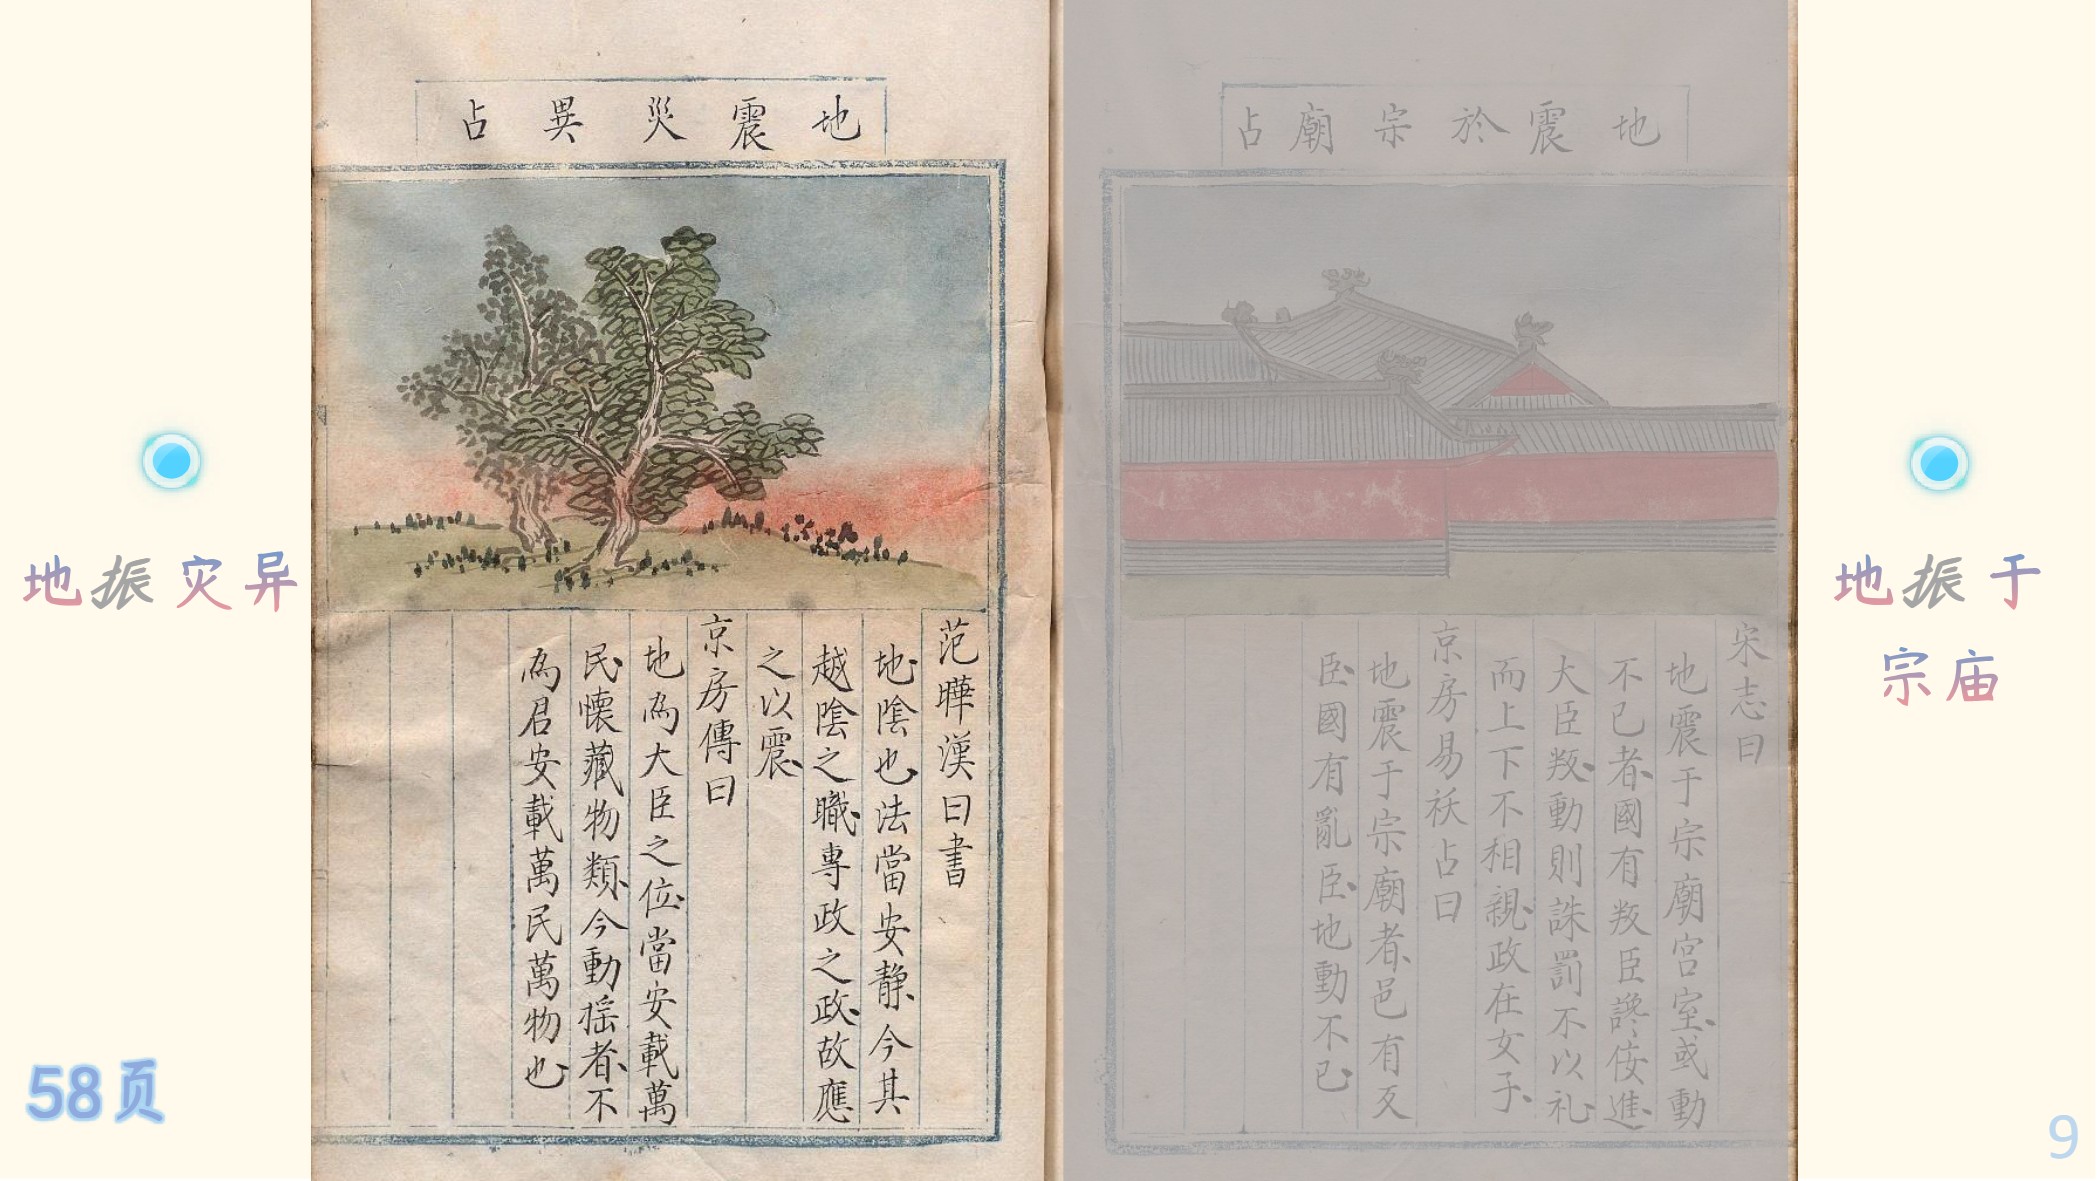 地振灾异
58页
地震災異占
范曄漢曰書
地陰也法當安静今其
越陰之職專政之政故應
之以震
京房傳曰
地為大臣之位當安載萬
民懷藏物類今動揺者不
為君安載萬民萬物也
地震於宗廟占
宋志曰
地震于宗廟宮室或動
不已者國有叛臣讒佞進
大臣叛動則誅罰不以礼
而上下不相親政在女子
京房易祅占曰
地震于宗廟者邑有叐
臣國有亂臣地動不已
地振于
宗庙
9